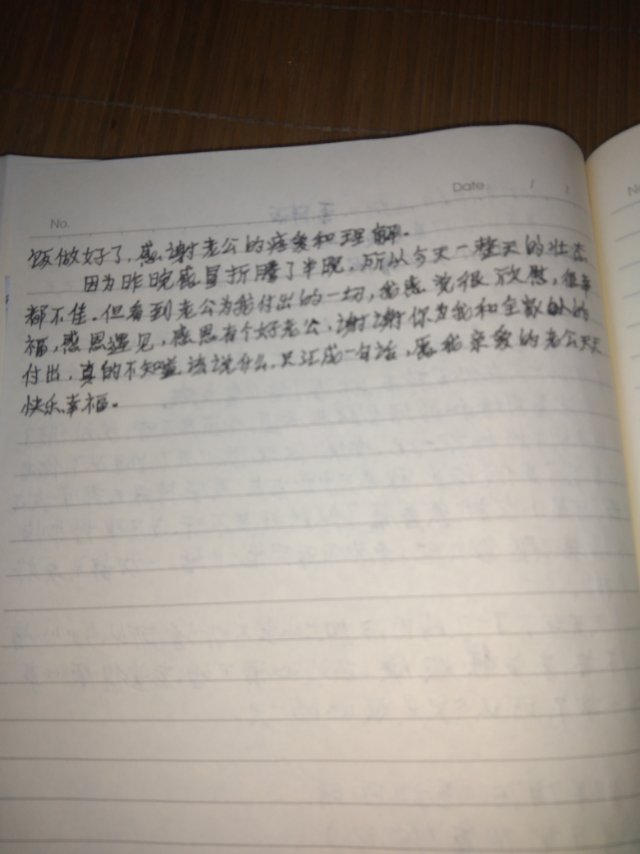 No.
Date / /
No
饭做好了,感谢老公的疼爱和理解。
因为昨晚感冒折腾了半晚,所以今天一整天的状态
都不佳。但看到老公为我付出的一切,我感觉很欣慰,很幸
福,感恩遇见,感恩有个好老公,谢谢你为我和全家人的
付出,真的不知道该说什么,只汇成一句话,愿我亲爱的老公天天
快乐幸福。